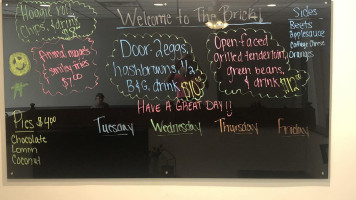 Welcome to The Brick!
Hoagie roll
Chips & drink
Animal nuggets
smiley fries
$7.00
Door 2 eggs,
hashbrowns, 1/2
B&G, drink
Open-faced
grilled tenderloin,
green beans,
& drink
Sides
Beets
Applesauce
Cottage Cheese
Oranges
HAVE A GREAT DAY!!
Pies $4.00
Chocolate
Lemon
Coconut
Tuesday
Wednesday
Thursday
Friday